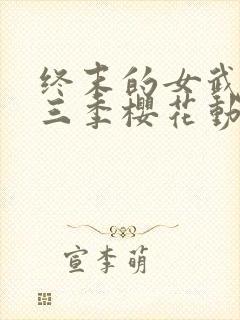 终末的女武
三季樱花动
宣李萌